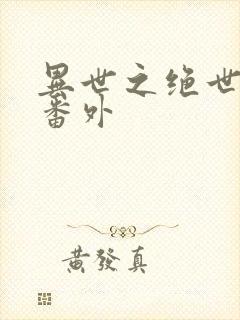 異世之绝世
番外
黄發真